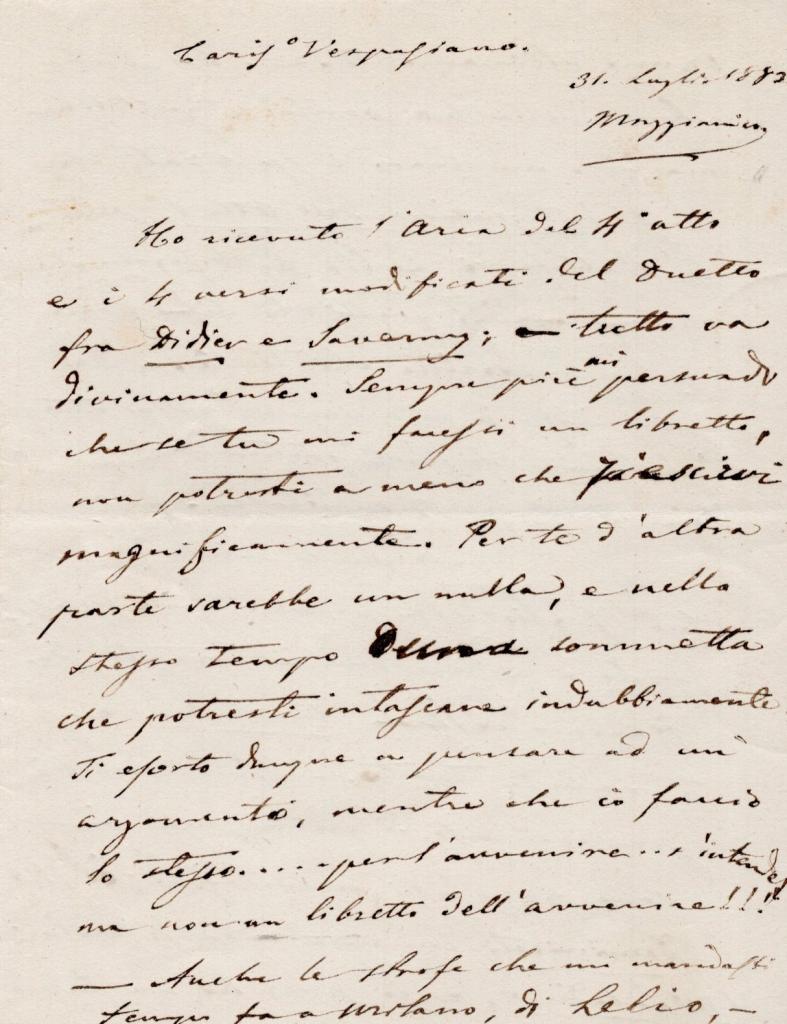 Caris.º Vespasiano.
31. Luglio 1883
Maggianico
Ho ricevuto l'Aria del 4º atto
e i 4 versi modificati del Duetto
fra Didier e Saverny; — tutto va
divinamente. Sempre più mi persuado
che se tu mi facessi un libretto,
non potresti a meno che riescirvi
magnificamente. Per te d'altra
parte sarebbe un nulla, e nello
stesso tempo una sommetta
che potresti intascare indubbiamente
Ti esorto dunque a pensare ad un
argomento, mentre che io faccio
lo stesso.... per l'avvenire.. s'intende
ma non un libretto dell'avvenire!!!
— Anche le strofe che mi mandasti
tempo fa a Milano, di Lelio, —